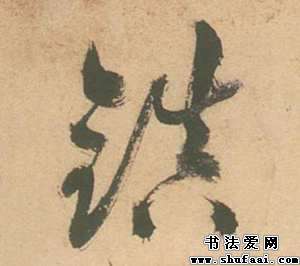 鎮
书法爱网
www.shufaai.com